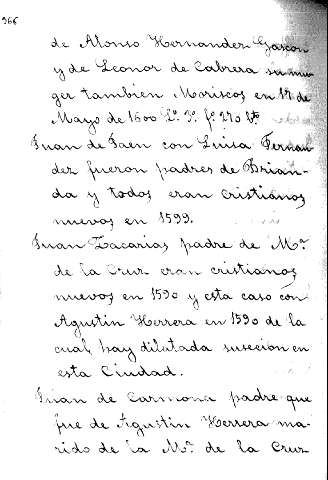 366
de Alonso Hernandez Gascon
y de Leonor de Cabrera su mu
ger tambien Moriscos en 17 de
Mayo de 1600 Lº. 3º. fº 270 Vº.
Juan de Jaen con Luisa Fernan
dez fueron padres de Brian-
da y todos eran cristianos
nuevos en 1599.
Juan Zacarias padre de Mª.
de la Cruz eran cristianos
nuevos en 1590 y esta caso con
Agustin Herrera en 1590 de la
cual hay dilatada susecion en
esta Ciudad.
Juan de Carmona padre que
fue de Agustin Herrera ma-
rido de la Mª. de la Cruz